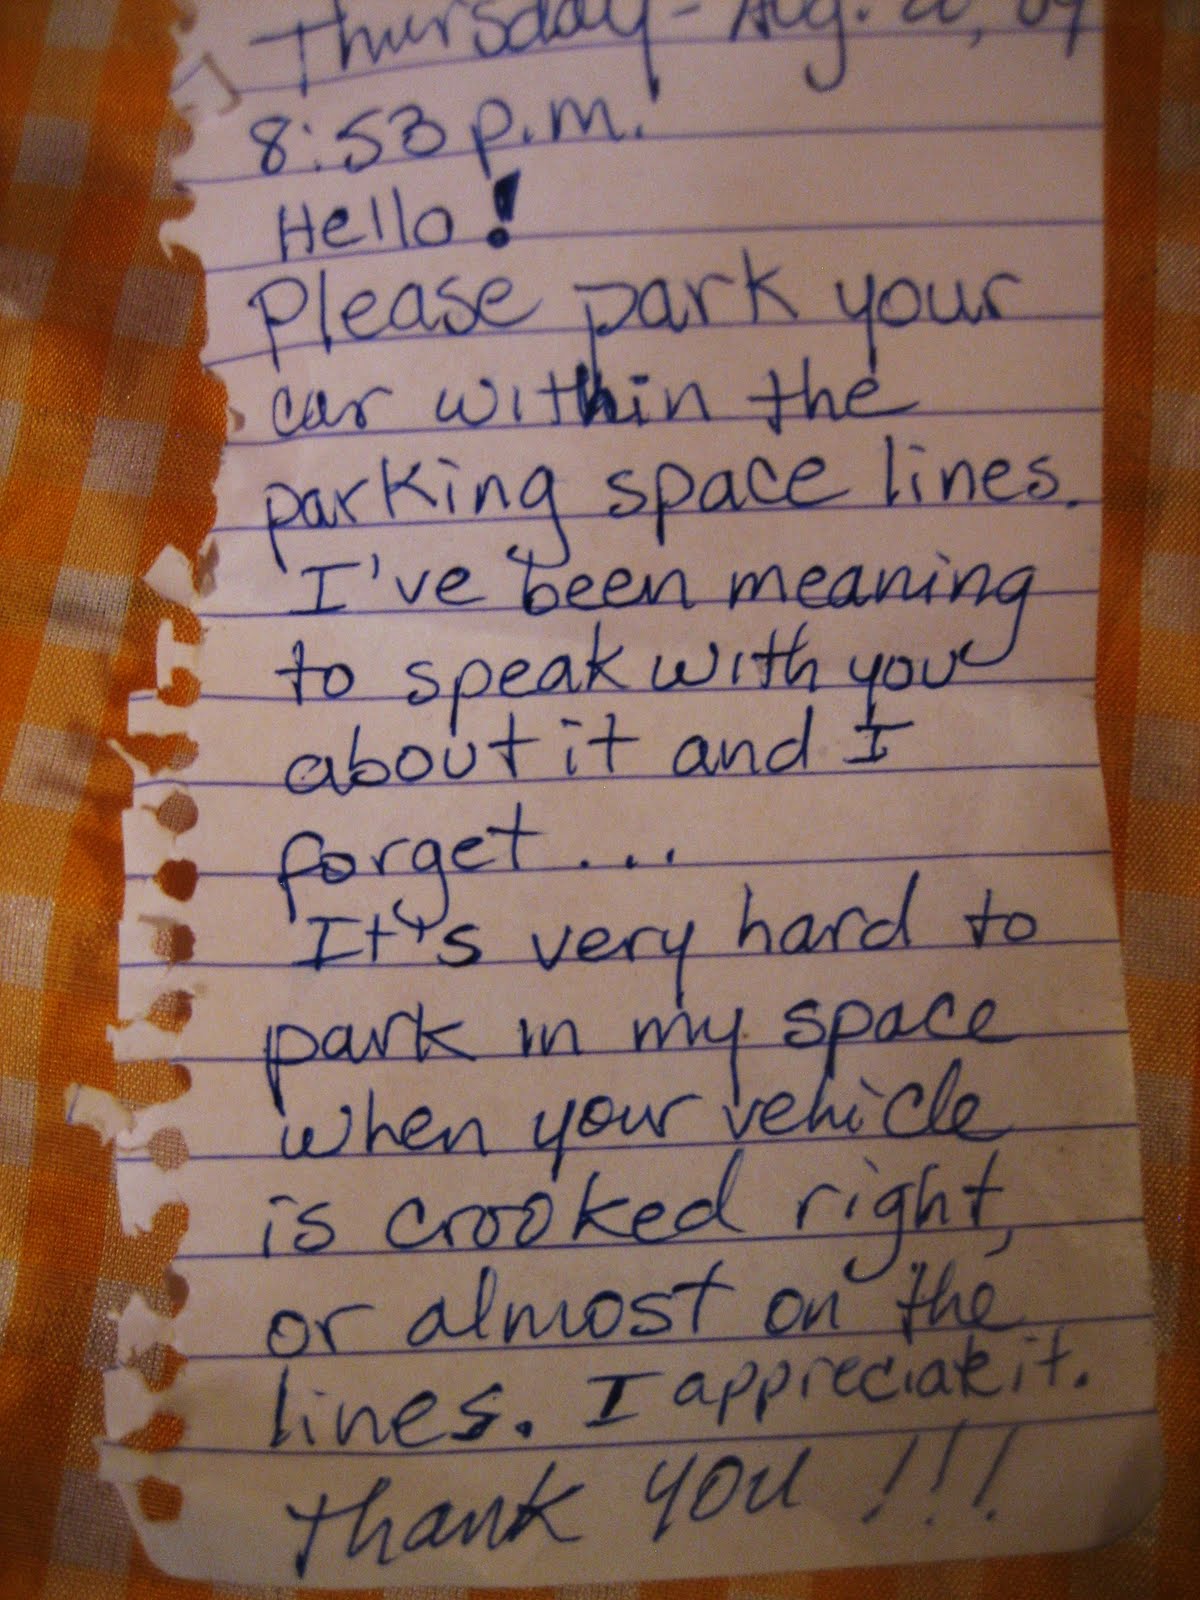 Thursday - Aug. 20, 09
8:53 p.m.
Hello!
Please park your
car within the
parking space lines.
I've been meaning
to speak with you
about it and I
forget...
It's very hard to
park in my space
when your vehicle
is crooked right,
or almost on the
lines. I appreciate it.
Thank you!!!